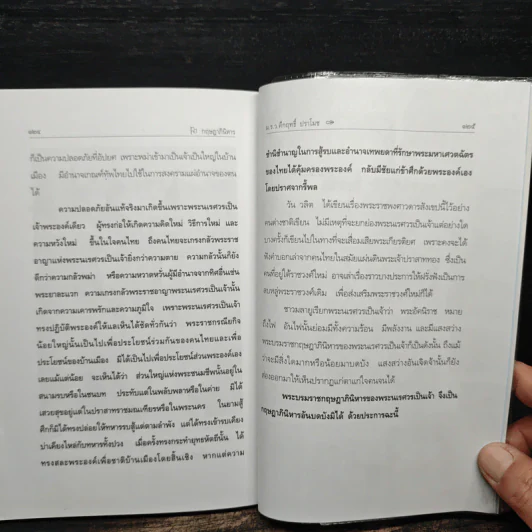 ๑๒๔ กฤษฎาภินิหาร
ก็เป็นความปลอดภัยที่อัปยศ เพราะพม่าเข้ามาเป็นเจ้าเป็นใหญ่ในบ้าน
เมือง มีอำนาจอาณัติทัพไทยไปใช้ในการสงครามแผ่อำนาจของตน
ได้
ความปลอดภัยอันแท้จริงมาเกิดขึ้นเพราะพระนเรศวรเป็น
เจ้าพระองค์เดียว ผู้ทรงก่อให้เกิดความคิดใหม่ วิธีการใหม่ และ
ความหวังใหม่ ขึ้นในใจคนไทย ถึงคนไทยจะเกรงกลัวพระราช
อาญาแห่งพระนเรศวรเป็นเจ้ายิ่งกว่าความตาย ความกลัวนั้นก็ยัง
ดีกว่าความกลัวพม่า หรือความหวาดหวั่นผู้มีอำนาจจากทิศอื่นเช่น
พระยาละแวก ความเกรงกลัวพระราชอาญาพระนเรศวรเป็นเจ้านั้น
เกิดจากความเคารพรักและความภูมิใจ เพราะพระนเรศวรเป็นเจ้า
ทรงปฏิบัติพระองค์ให้แลเห็นได้ชัดทั่วกันว่า พระราชกรณียกิจ
น้อยใหญ่นั้นเป็นไปเพื่อประโยชน์ร่วมกันของคนไทยและเพื่อ
ประโยชน์ของบ้านเมือง มิได้เป็นไปเพื่อประโยชน์ส่วนพระองค์เอง
เลยแม้แต่น้อย จะเห็นได้ว่า ส่วนใหญ่แห่งพระชนมชีพนั้นอยู่ใน
สนามรบหรือในชนบท ประทับแต่ในพลับพลาหรือในค่าย มิได้
เสวยสุขอยู่แต่ในปราสาทราชมณเฑียรหรือในพระนคร ในยามสู้
ศึกก็มิได้ทรงปล่อยให้ทหารรบสู้แต่ตามลำพัง แต่ได้ทรงเข้ารบเคียง
บ่าเคียงไหล่กับทหารทั้งปวง เมื่อครั้งทรงกระทำยุทธหัตถีนั้น ได้
ทรงสละพระองค์เพื่อชาติบ้านเมืองโดยสิ้นเชิง หากแต่ความ
ม.ร.ว.คึกฤทธิ์ ปราโมช ๑๒๕
ชำนิชำนาญในการสู้รบและอำนาจเทพยดาที่รักษาพระมหาเศวตฉัตร
ของไทยได้คุ้มครองพระองค์ กลับมีชัยแก่ข้าศึกด้วยพระองค์เอง
โดยปราศจากรี้พล
วัน วลิต ได้เขียนเรื่องพระราชพงศาวดารสังเขปนี้ไว้อย่าง
คนต่างชาติเขียน ไม่มีเหตุที่จะยกย่องพระนเรศวรเป็นเจ้าแต่อย่างใด
บางครั้งก็เขียนไปในทางที่จะเสื่อมเสียพระเกียรติยศ เพราะคงจะได้
ฟังคำบอกเล่าจากคนไทยในสมัยแผ่นดินพระเจ้าปราสาททอง ซึ่งเป็น
คนที่อยู่ใต้ราชวงศ์ใหม่ อาจเล่าเรื่องราวบางประการให้ฝรั่งฟังเป็นการ
ลบหลู่พระราชวงศ์เดิม เพื่อส่งเสริมพระราชวงศ์ใหม่ก็ได้
ชาวมลายูเรียกพระนเรศวรเป็นเจ้าว่า พระอัคนิราช หมาย
ถึงไฟ อันไฟนั้นย่อมมีทั้งความร้อน มีพลังงาน และมีแสงสว่าง
พระบรมราชกฤษฎาภินิหารของพระนเรศวรเป็นเจ้าก็เป็นดังนั้น ถึงแม้
ว่าจะมีสิ่งใดมากหรือน้อยมาบดบัง แสงสว่างอันเจิดจ้านั้นก็ยัง
ส่องออกมาให้เห็นปรากฏแก่ตาแก่ใจคนจนได้
พระบรมราชกฤษฎาภินิหารของพระนเรศวรเป็นเจ้า จึงเป็น
กฤษฎาภินิหารอันบดบังมิได้ ด้วยประการฉะนี้